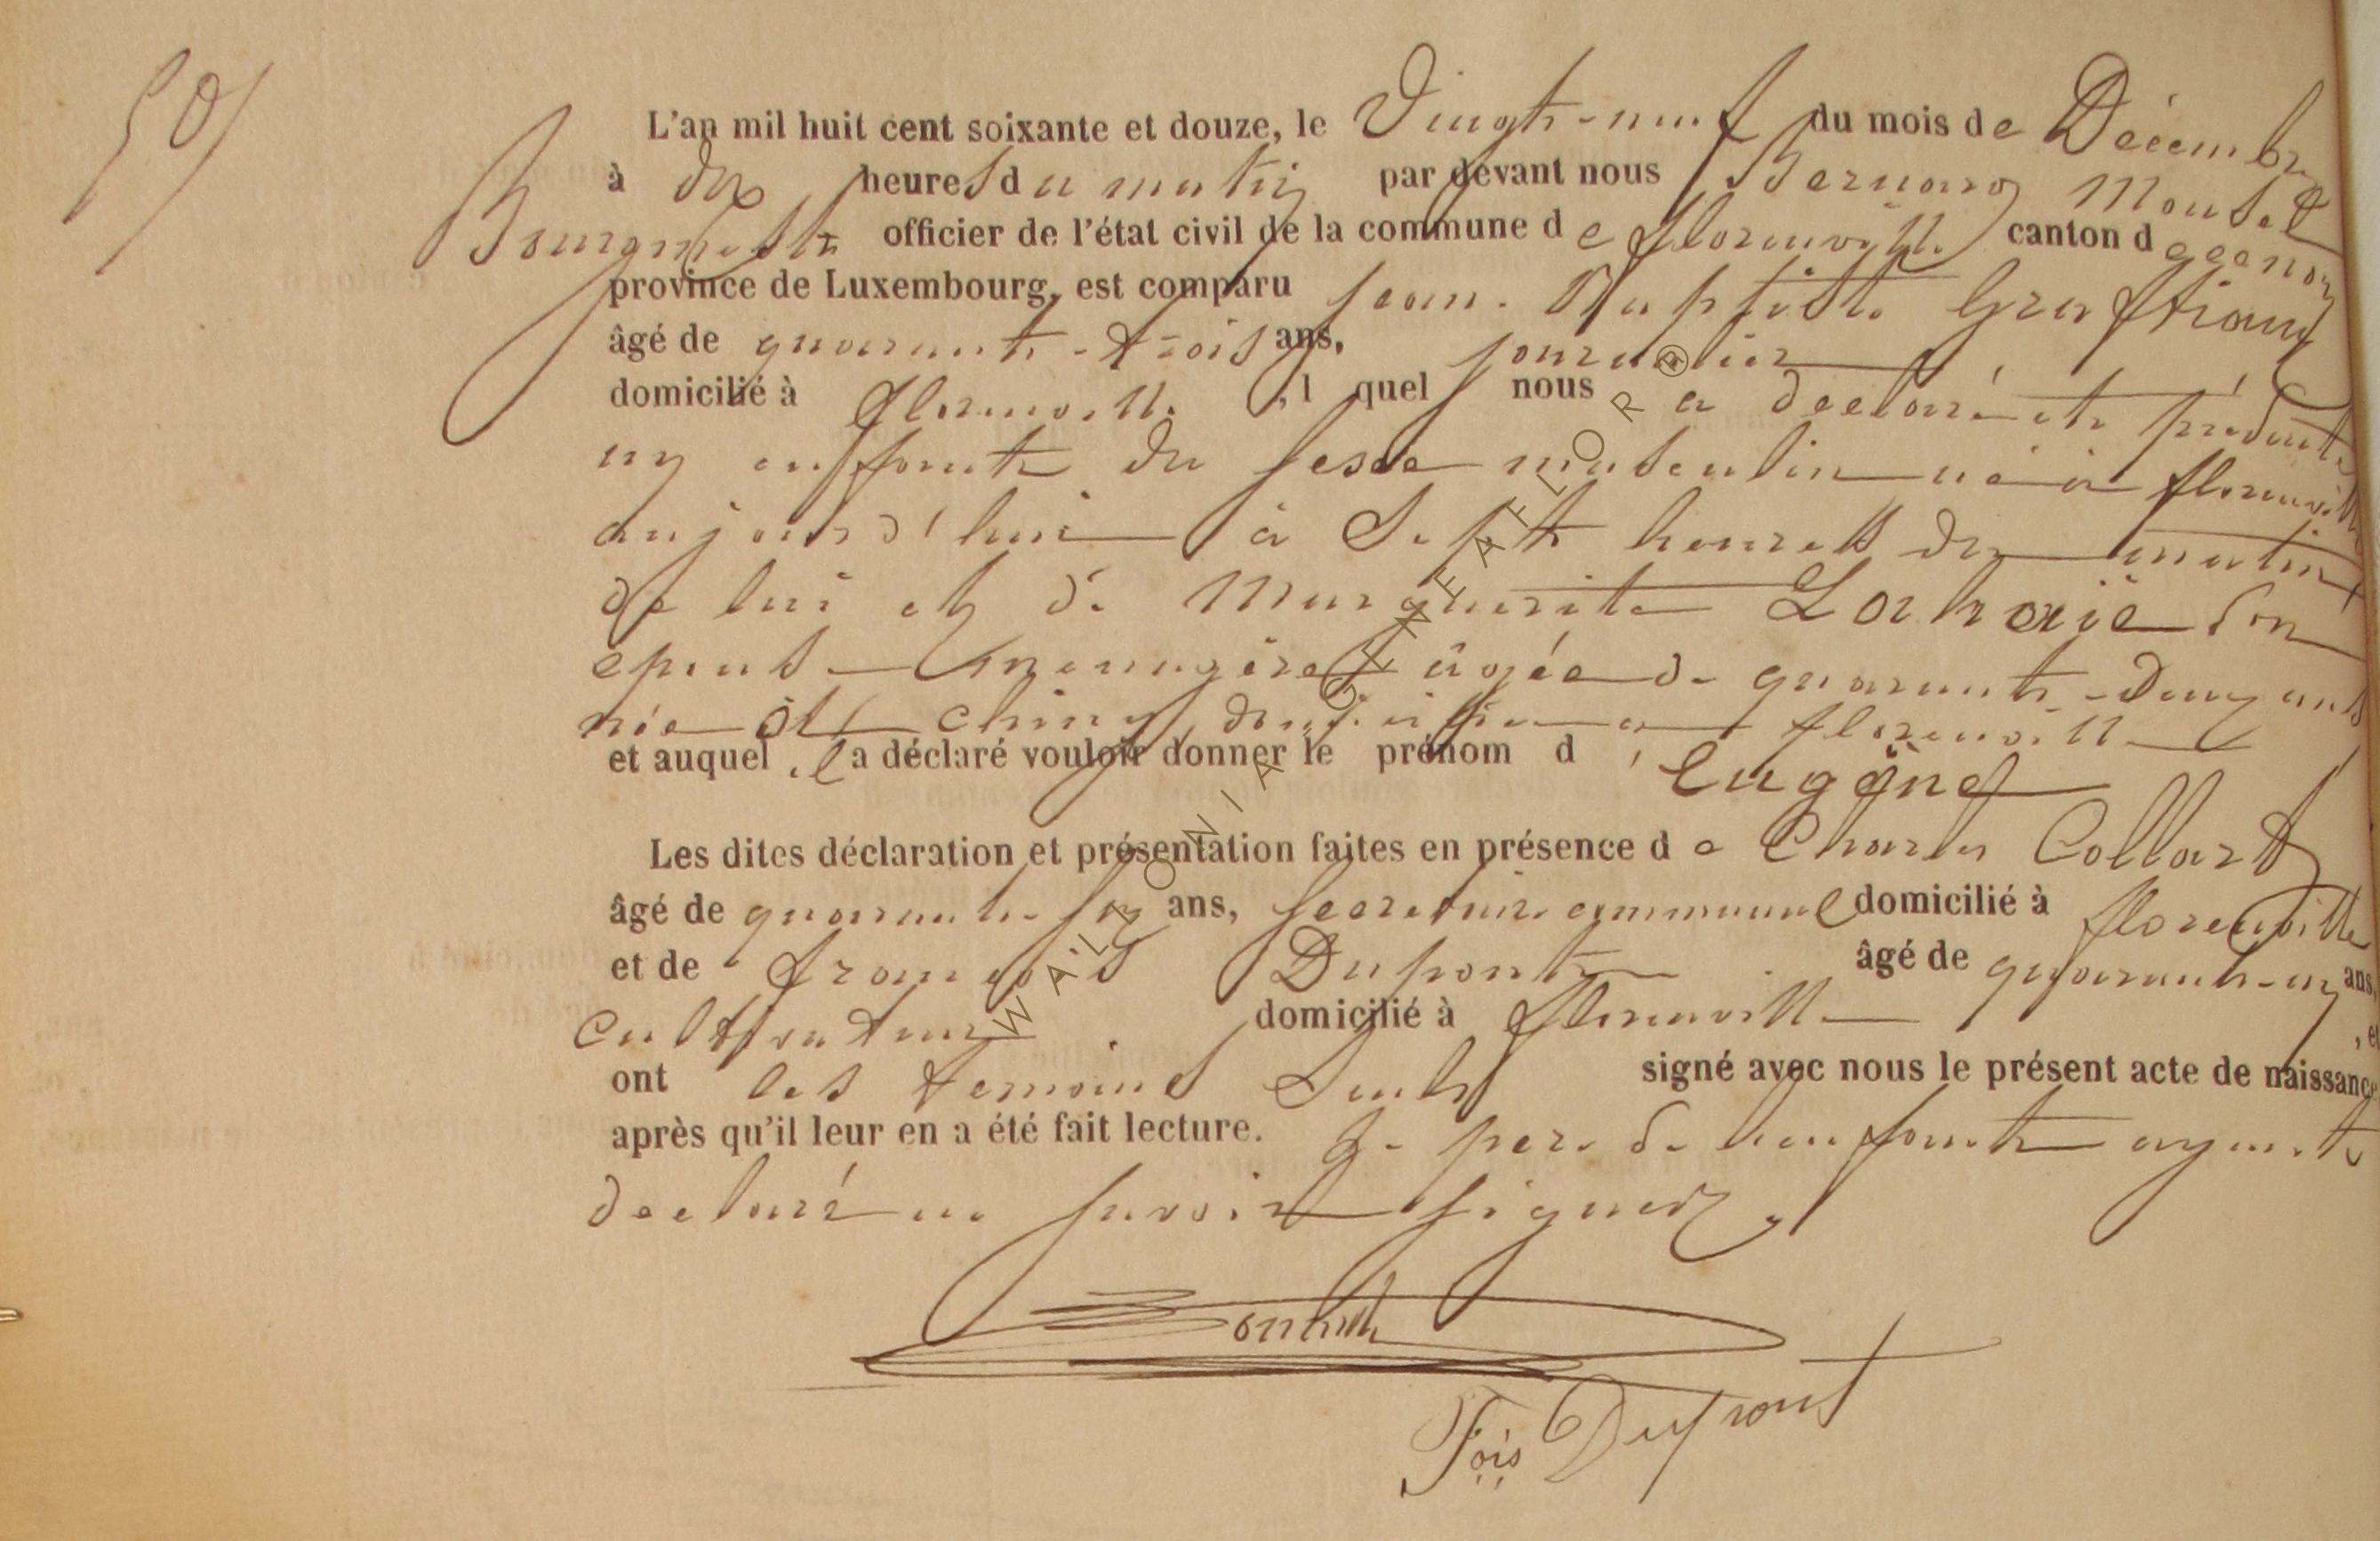 50
L'an mil huit cent soixante et douze, le Vingt-neuf du mois de Décembre
à dix heures du matin par devant nous Bernard Mousel
Bourgmestre officier de l'état civil de la commune de florenville canton d
province de Luxembourg, est comparu Jean-Baptiste Graftiaux
âgé de quarante-trois ans, journalier
domicilié à florenville, l quel nous a déclaré et présenté
un enfant du sexe masculin né à florenville
aujourd'hui à Sept heures du matin
de lui et de Marguerite Lahaije son
epouse menagère âgée de quarante-deux ans
née à chiny, domiciliée à florenville
et auquel il a déclaré vouloir donner le prénom d'Eugène
Les dites déclaration et présentation faites en présence de Charles Collard
âgé de quarante-six ans, secretaire communal domicilié à florenville
et de françois Dupont âgé de quarante-un ans,
Cultivateur domicilié à florenville, et
ont les temoins Seuls signé avec nous le présent acte de naissance
après qu'il leur en a été fait lecture. Le pere de l'enfant ayant
declaré ne savoir signer.
Fois Dupont
WALLONIA GENEAFLOR ®